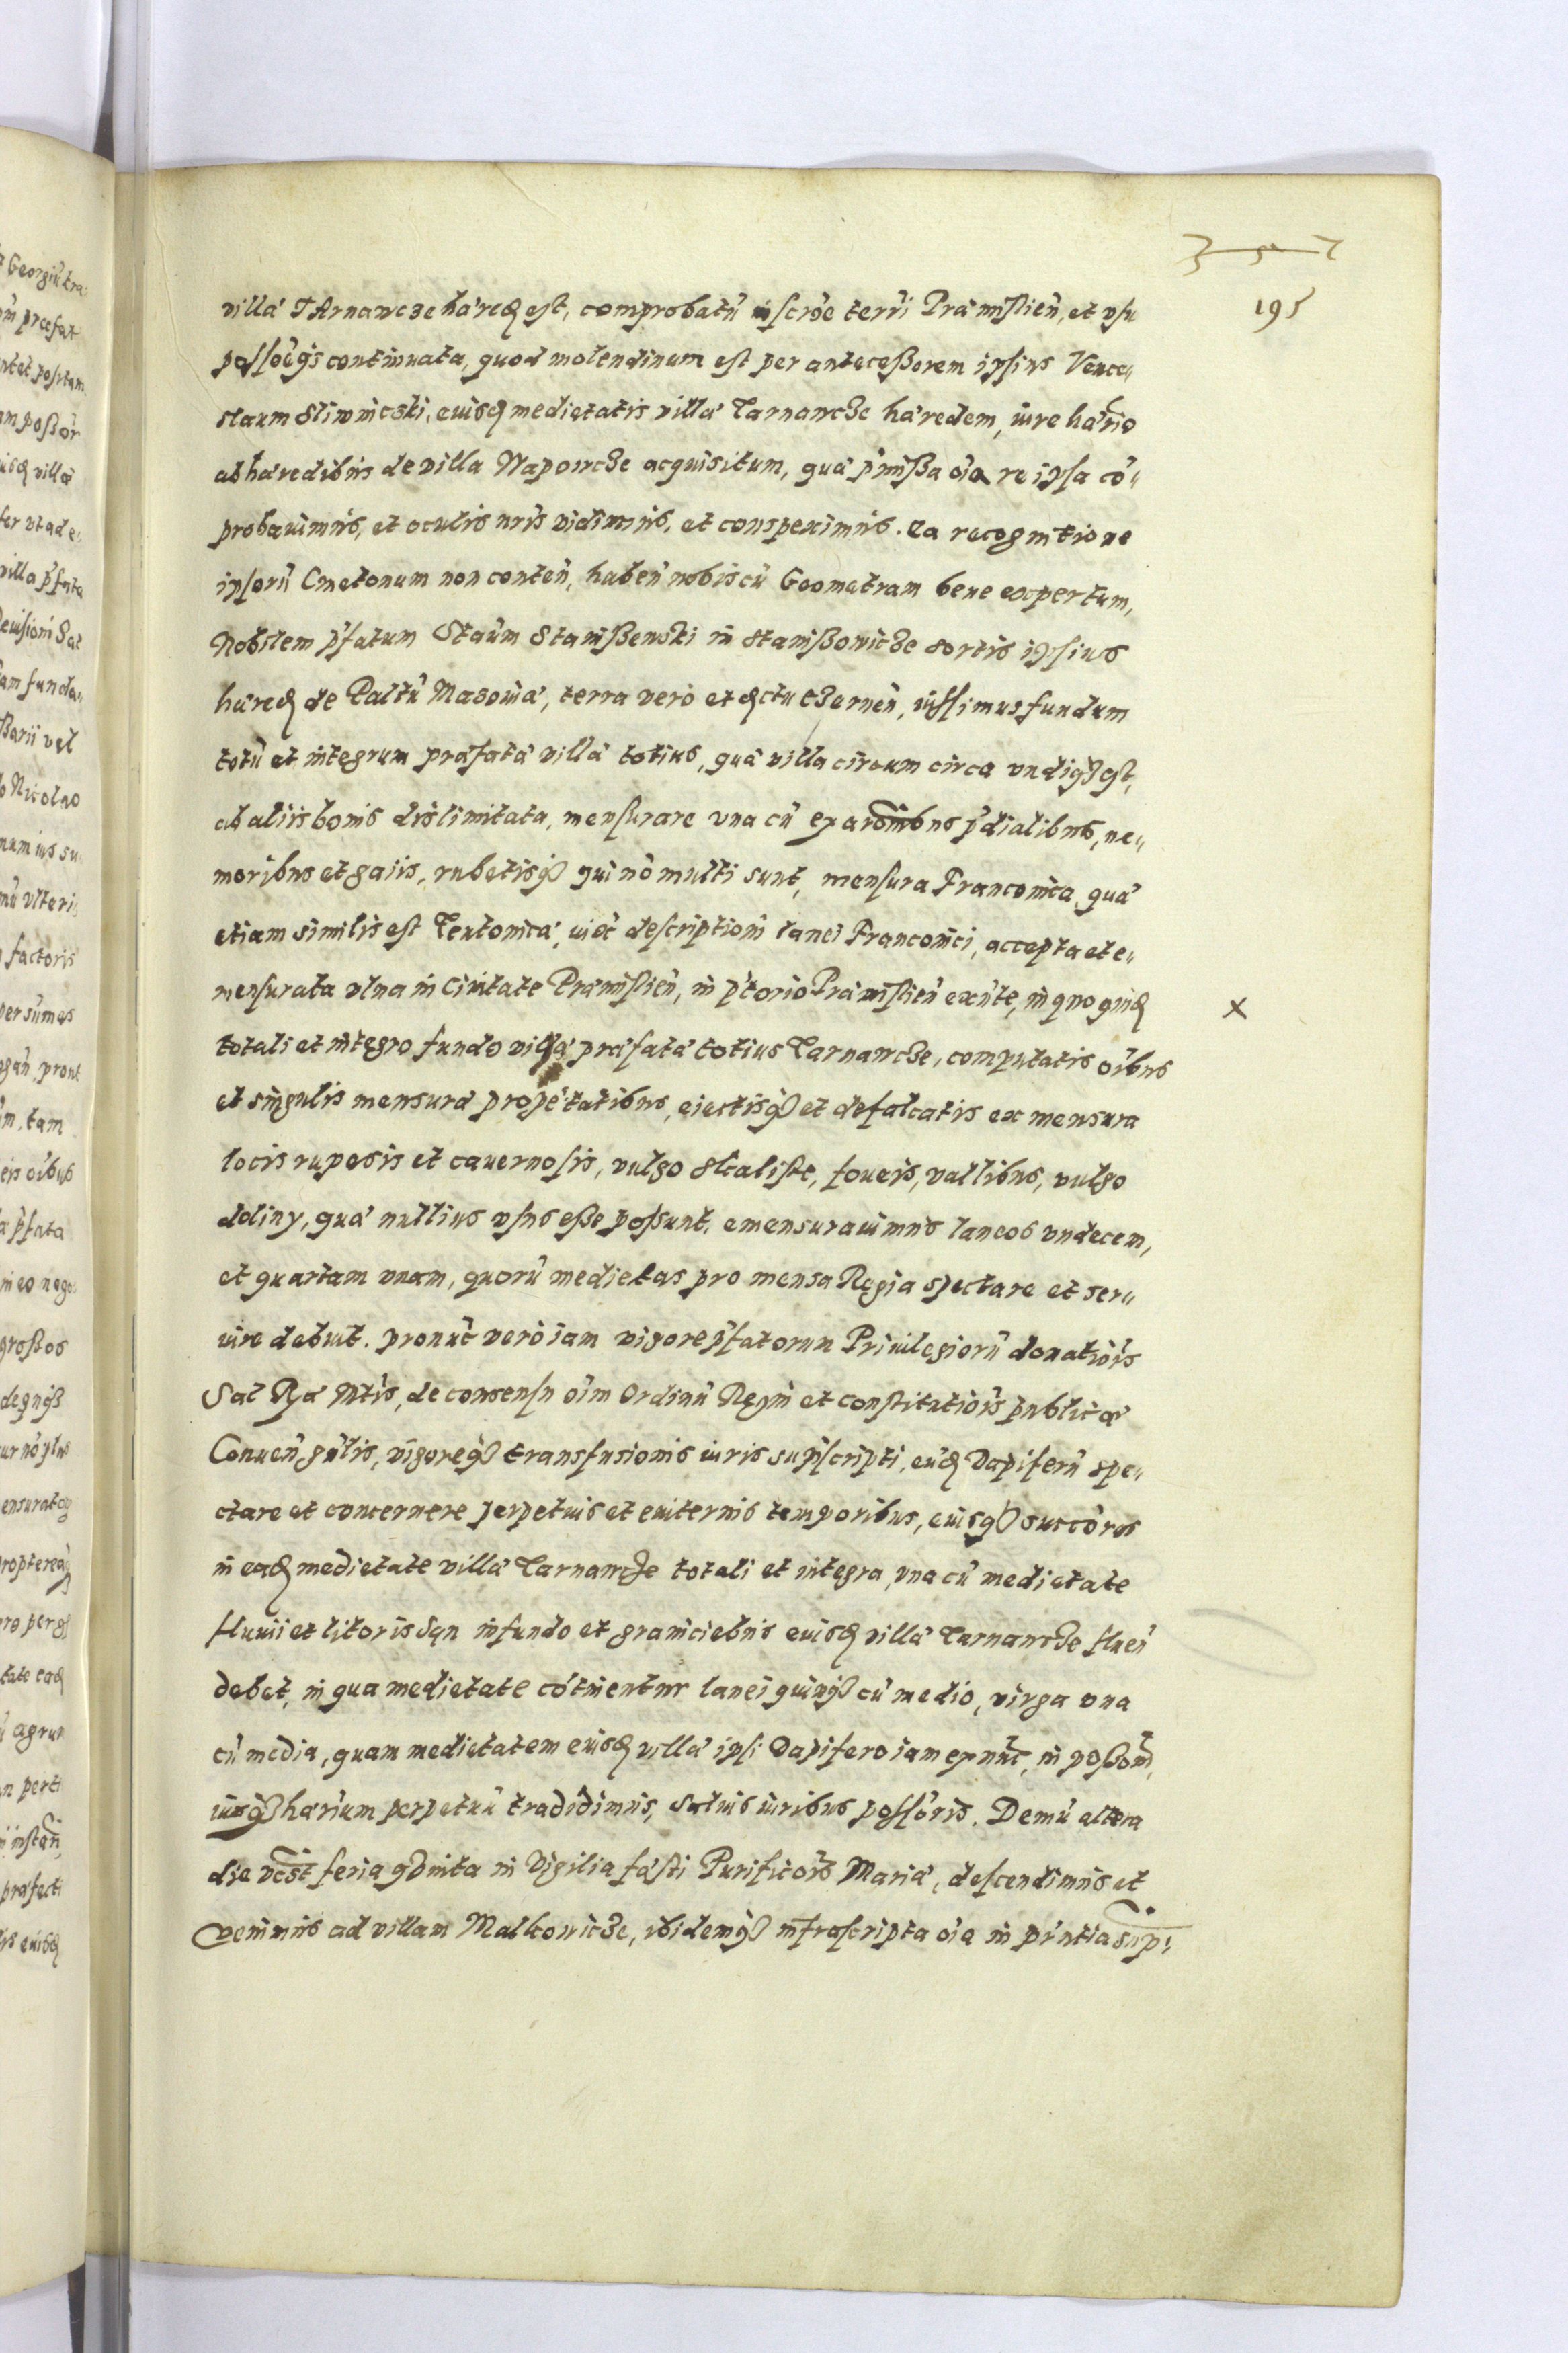 357
195
villæ TArnawcze hæredꝫ est, comprobatũ inscrõe terrĩ Præmislieñ, et usu
possõeqꝫ continuata, quod molendinum est per antecessorem ipsius Vence„
slaum Sliwnicski, euisdꝫ medietatis villæ Tarnawcze hæredem, iure hærĩo
ab hæredibus de villa Napowcze acquisitum, quæ p̃missa oĩa re ipsa cõ„
probauimus, et oculis nr̃is vidimus, et conspeximus. Ea recognitione
ipsorũ Cmetonum non conteñ, habeñ nobiscũ Geometram bene expertum,
Nobilem p̃fatum Staũm Stanissewski in Stanissowicze sortis ipsius
hæredꝫ de Paltũ Masoviæ, terra vero et dꝫctu Czerneñ, iussimus fundum
totũ et integrum præfatæ villæ totius, quæ villa circum circa vndiqꝫ est,
ab aliis bonis dislimitata, mensurare vna cũ exarõnibus p̃dialibus, ne„
moribus et gaiis, rubetisqꝫ qui nõ multi sunt, mensura Franconica, quæ
etiam similis est Teutonicæ, iuxt̃ descriptioñ lanei Franconici, accepta et e„
mensurata ulna in Ciuitate Præmislieñ, in p̃torio Præmislieñ exñte, in quo quidꝫ
x
totali et integro fundo villæ præfatæ totius Tarnawcze, computatis oĩbus
et singulis mensuræ propẽtatibus, eiectisqꝫ et defalcatis ex mensura
locis ruposis et cauernosis, vulgo Skaliste, foueis, vallibus, vulgo
doliny, quæ nullius usus esse possunt, emensurauimus laneos vndecem,
et quartam vnam, quorũ medietas pro mensa Regia spectare et ser„
uire debuit. pronũc vero iam vigore p̃fatorum Priuilegiorũ donatiõis
Sac Rgæ Mtis, de consensu oĩm Ordinũ Regni et constitutiõis publicæ
Conueñ gñlis, vigoreqꝫ transfusionis iuris supˢscripti, eũdꝫ Dapiferũ spe„
ctare et concernere perpetuis et euiternis temporibus, euisqꝫ succõres
in eadꝫ medietate villæ Tarnawcze totali et integra, vna cũ medietate
fluuii et litoris San in fundo et graniciebus euisdꝫ villæ Tarnawcze flueñ
debet, in qua medietate cõtinentur lanei quinqꝫ cũ medio, virga vna
cũ media, quam medietatem euisdꝫ villæ ipsi Dapifero iam exnũc, in possoñ,
iusqꝫ hærĩum perpetuũ tradidimus, saluis iuribus possõris. Demũ altera
die vcꝫst feria quinta in Vigilia fæsti Purificõis Mariæ, descendimus et
venimus ad villam Malkowicze, ibidemqꝫ infrascripta oĩa in p̃ntia sup„